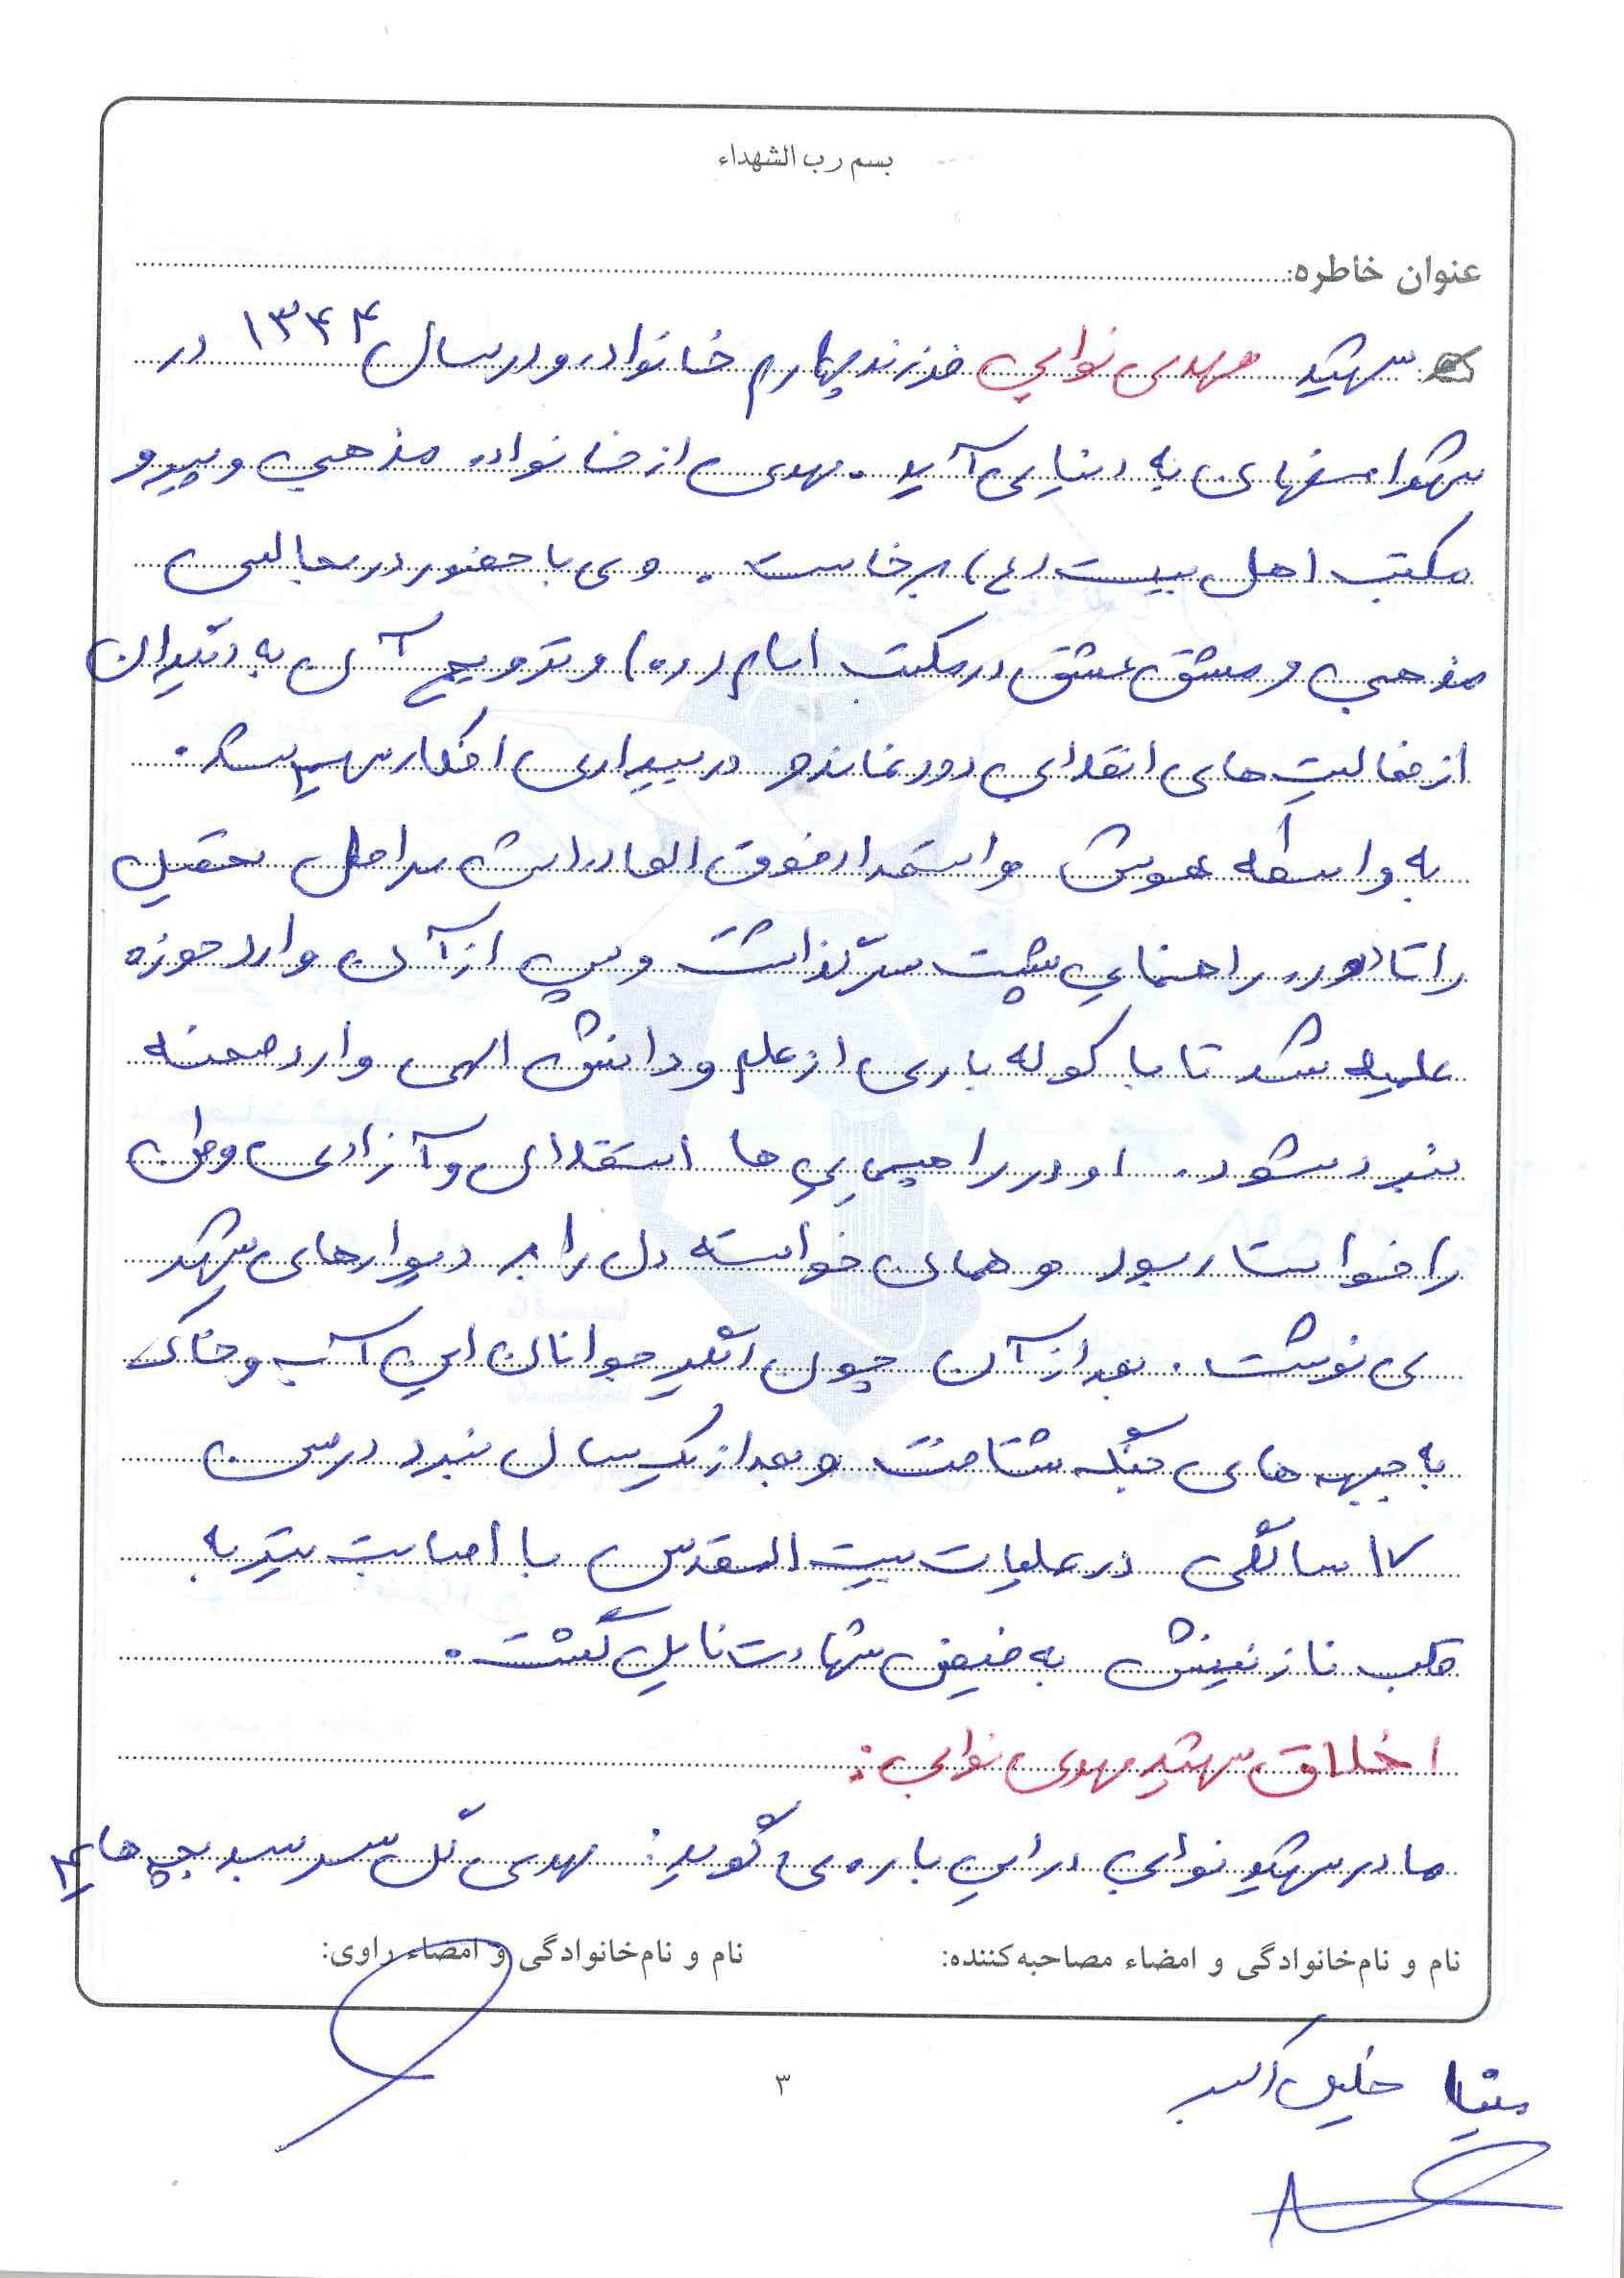 بسم رب الشهداء
عنوان خاطره:
شهید مهدی نوایی فرزند چهارم خانواده و در سال ۱۳۴۴ در
شهر اصفهان به دنیا می آید. مهدی از خانواده مذهبی و پیرو
مکتب اهل بیت (ع) برخاست. وی با حضور در مجالس
مذهبی و مشق عشق در مکتب امام (ره) و ترویج آن به دیگران
از فعالیت های انقلابی دور نماند و در بیداری افکار سهیم شد.
به واسطه هوش و استعداد فوق العاده اش مراحل تحصیل
را تا دوره راهنمایی پشت سر گذاشت و پس از آن وارد حوزه
علمیه شد تا با کوله باری از علم و دانش الهی وارد صحنه
نبرد شود. او در راهپیمایی ها استقلال و آزادی وطن
را خواستار بود و همان خواسته دل را بر دیوارهای شهر
می نوشت. بعد از آن چون دیگر جوانان این آب و خاک
به جبهه های جنگ شتافت و بعد از یک سال نبرد در سن
۱۷ سالگی در عملیات بیت المقدس با اصابت تیر به
قلب نازنینش به فیض شهادت نایل گشت.
اخلاق شهید مهدی نوایی:
مادر شهید نوایی در این باره می گوید: مهدی گل سرسبد بچه هایم
نام و نام‌خانوادگی و امضاء مصاحبه‌کننده: نام و نام‌خانوادگی و امضاء راوی:
خلیل اکبر
۳